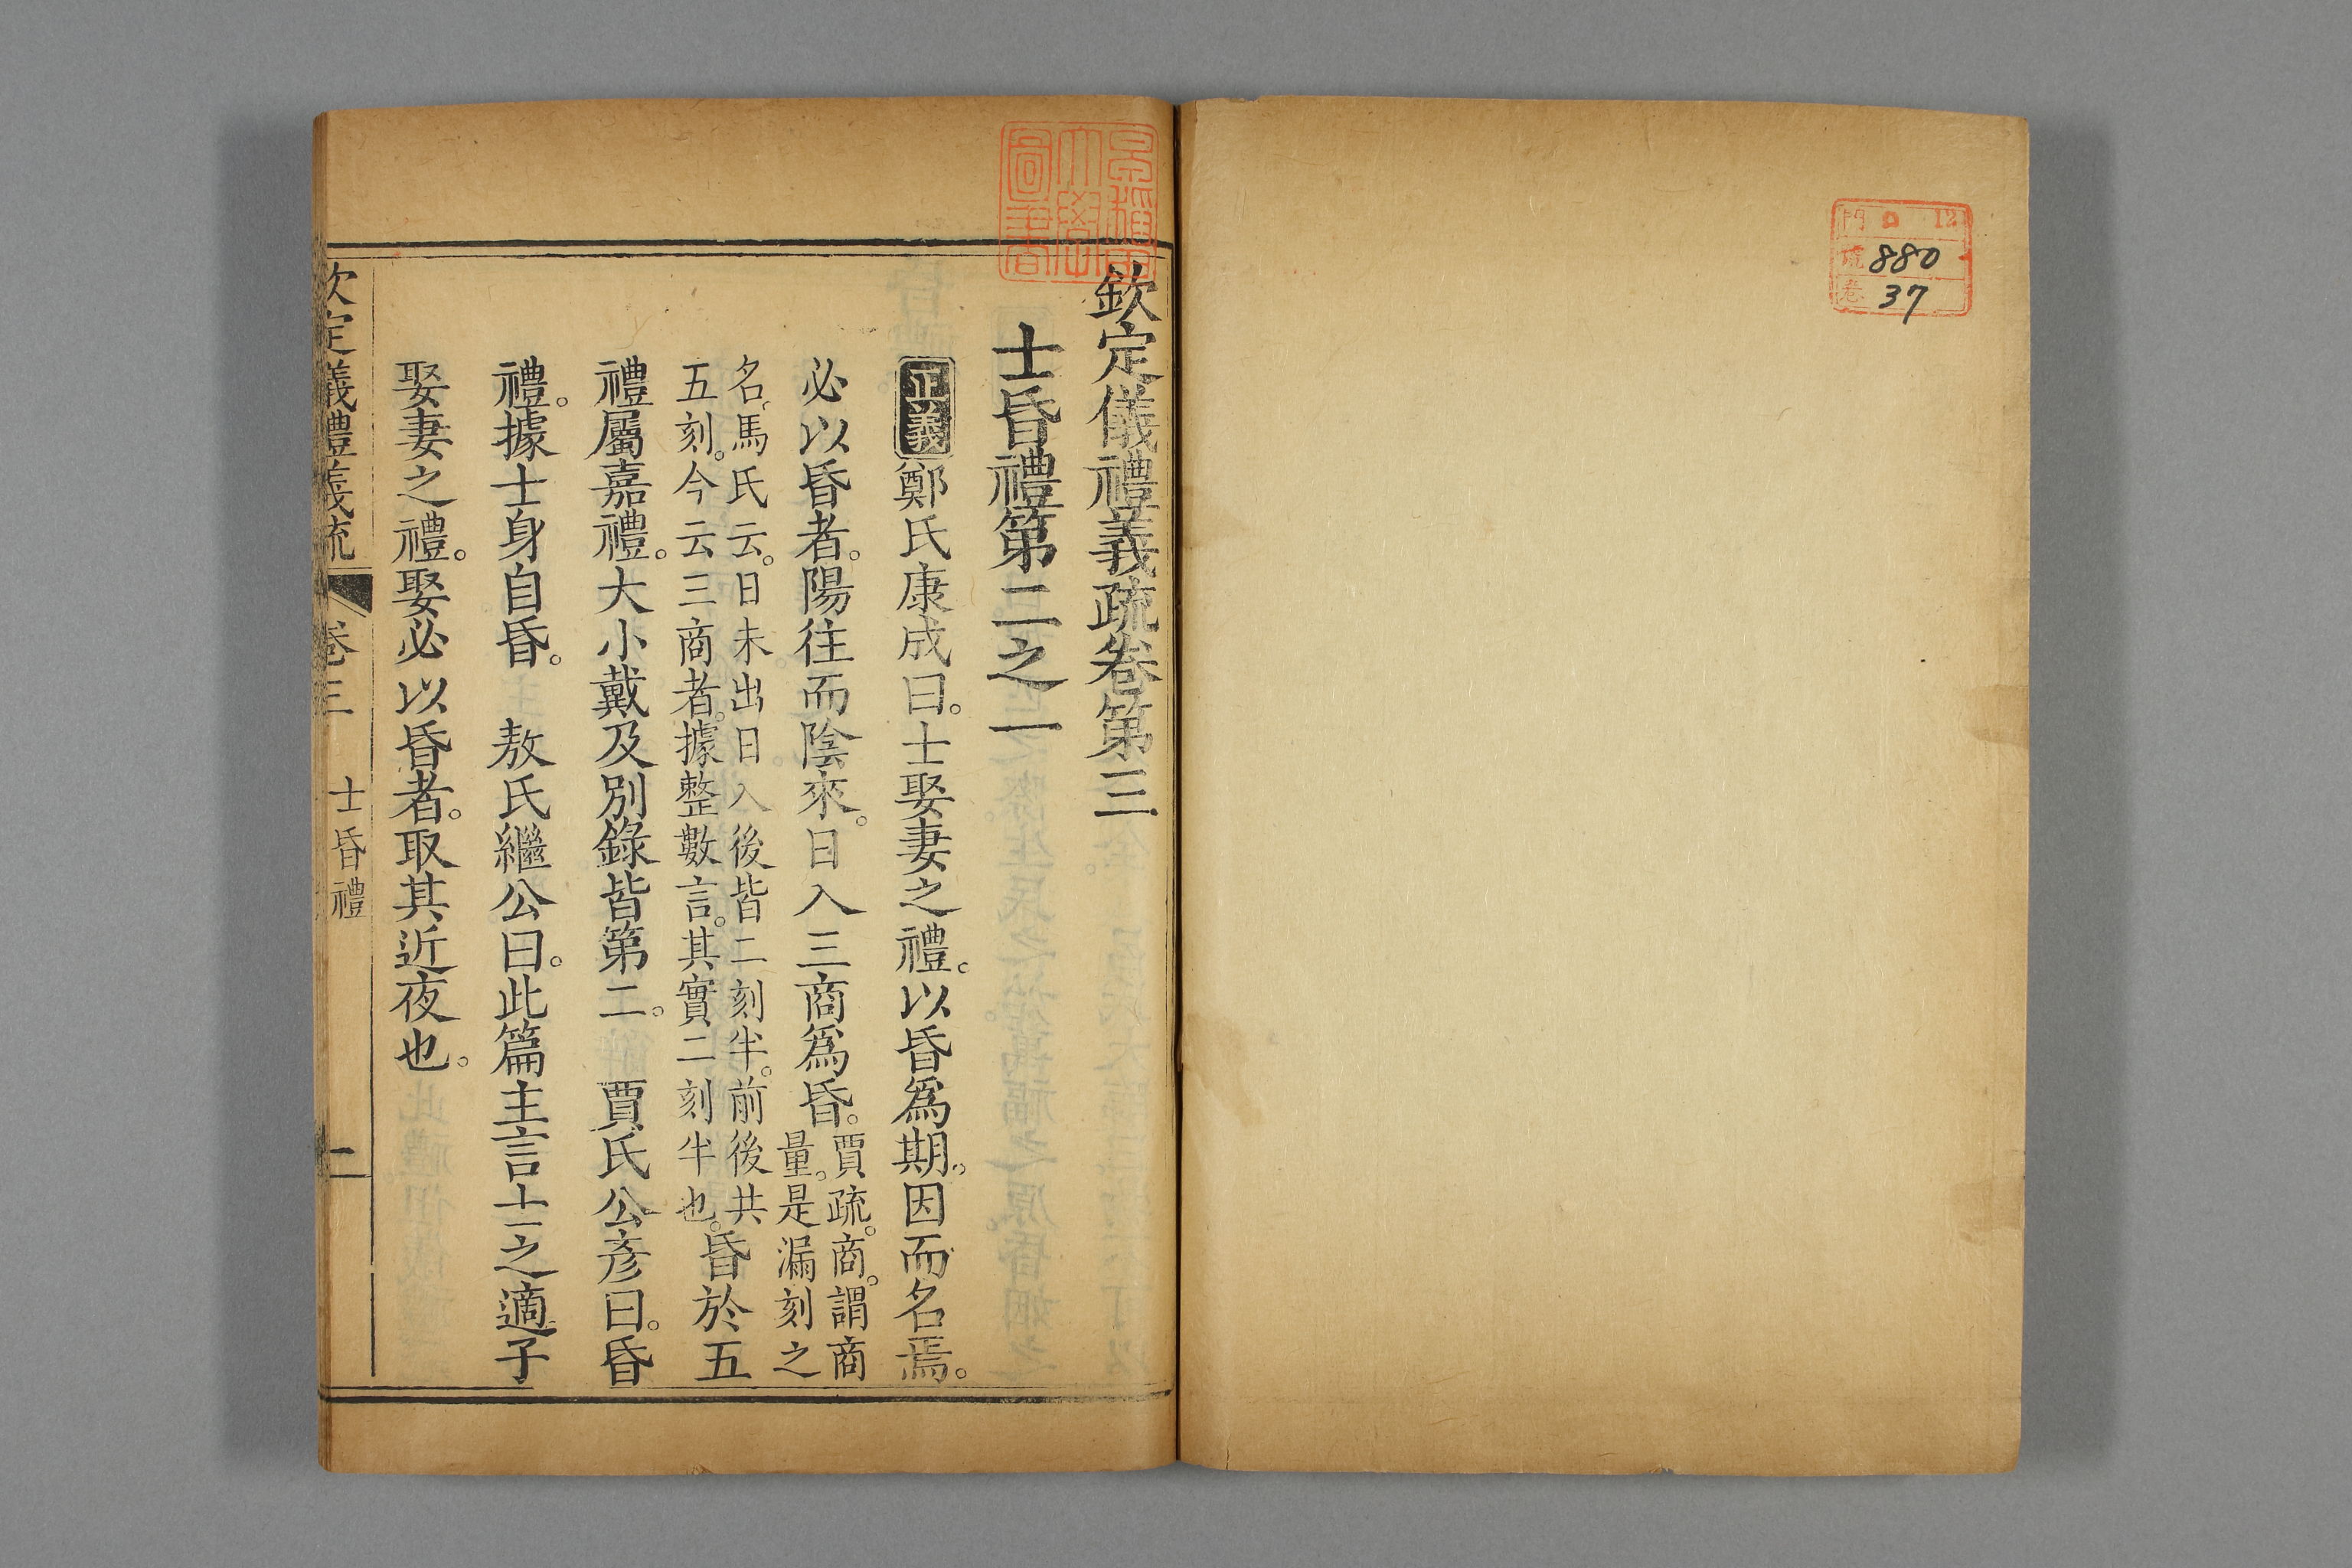 門 口 12
號 880
卷 37
早稻田
大學
圖書
欽定儀禮義疏卷第三
士昏禮第二之一
正義鄭氏康成曰。士娶妻之禮。以昏爲期。因而名焉。
必以昏者。陽往而陰來。日入三商爲昏。賈疏。商。謂商
量。是漏刻之
名。馬氏云。日未出日入後皆二刻半。前後共
五刻。今云三商者。據整數言。其實二刻半也。昏於五
禮屬嘉禮。大小戴及別錄皆第二。 賈氏公彥曰。昏
禮。據士身自昏。 敖氏繼公曰。此篇主言士之適子
娶妻之禮。娶必以昏者。取其近夜也。
欽定儀禮義疏 卷三 士昏禮 一